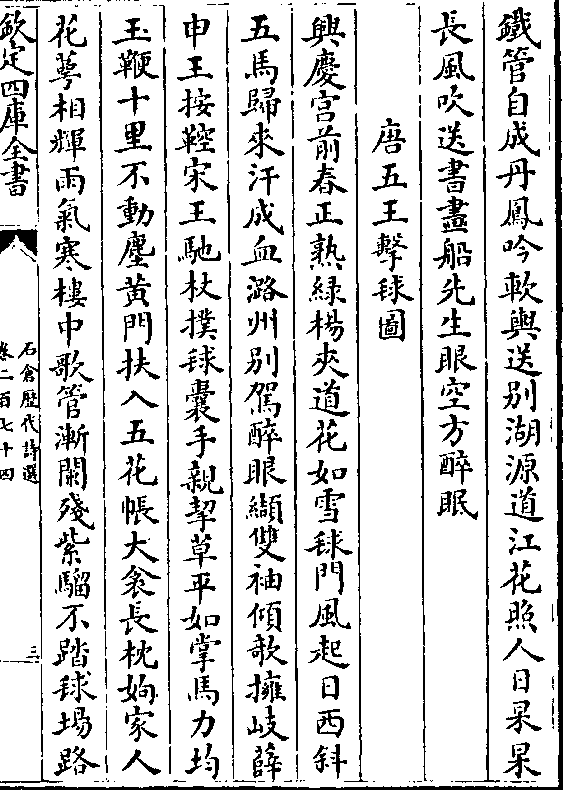 鐵管自成丹鳳吟軟輿送别湖源道江花照人日杲杲
長風吹送書畫船先生眼空方醉眠
唐五王擊毬圖
興慶宫前春正熟緑楊夾道花如雪毬門風起日西斜
五馬歸來汗成血潞州别駕醉眼纈雙袖傾歌擁岐薛
申王按鞚宋王馳杖撲毬囊手親挈草平如掌馬力均
玉鞭十里不動塵黄門扶入五花帳大衾長枕姁家人
花萼相輝雨氣寒樓中歌管漸闌殘紫騮不踏毬場路
欽定四庫全書
石倉歷代詩選
卷二百七十四
三